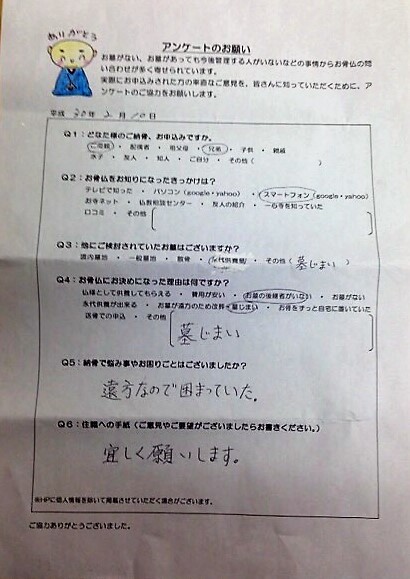 ありがとう
アンケートのお願い
お墓がない、お墓があっても今後管理する人がいないなどの事情からお骨仏の問
い合わせが多く寄せられています。
実際にお申込みされた方の率直なご意見を、皆さんに知っていただくために、ア
ンケートのご協力をお願いします。
平成 30年 2月 10日
Q1：どなた様のご納骨、お申込みですか。
ご両親 ・ 配偶者 ・ 祖父母 ・ 兄弟 ・ 子供 ・ 親戚
水子 ・ 友人 ・ 知人 ・ ご自分 ・ その他（ ）
Q2：お骨仏をお知りになったきっかけは？
テレビで知った ・ パソコン（google・yahoo） ・ スマートフォン（google・yahoo）
お寺ネット ・ 仏教相談センター ・ 友人の紹介 ・ 一心寺を知っていた
口コミ ・ その他
Q3：他にご検討されていたお墓はございますか？
境内墓地 ・ 一般墓地 ・ 散骨 ・ 永代供養墓 ・ その他（墓じまい）
Q4：お骨仏にお決めになった理由は何ですか？
仏様として供養してもらえる ・ 費用が安い ・ お墓の後継者がいない ・ お墓がない
永代供養が出来る ・ お墓が遠方のため改葬 ・ 墓じまい ・ お骨をずっと自宅に置いていた
送骨での申込 ・ その他
墓じまい
Q5：納骨で悩み事やお困りごとはございましたか？
遠方なので困まっていた。
Q6：住職への手紙（ご意見やご要望がございましたらお書きください。）
宜しく願いします。
※HPに個人情報を除いて掲載させていただく場合がございます。
ご協力ありがとうございました。